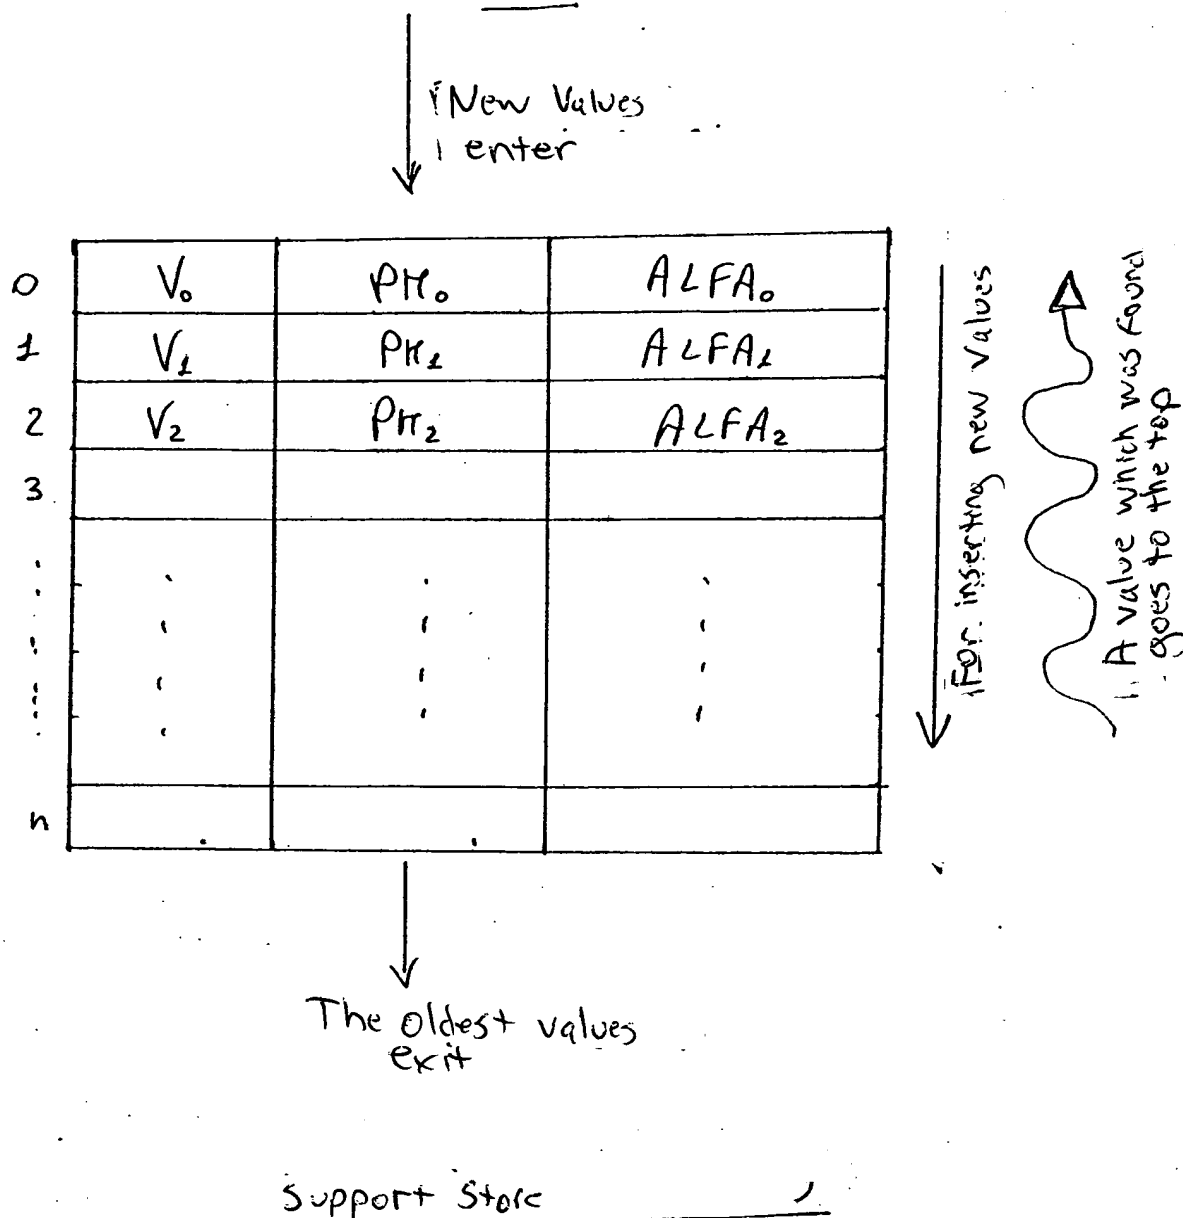 New Values
enter
0 V₀ PM₀ ALFA₀
1 V₁ PM₁ ALFA₁
2 V₂ PM₂ ALFA₂
3
n
For inserting new values
A value which was found
goes to the top
The oldest values
exit
Support Store